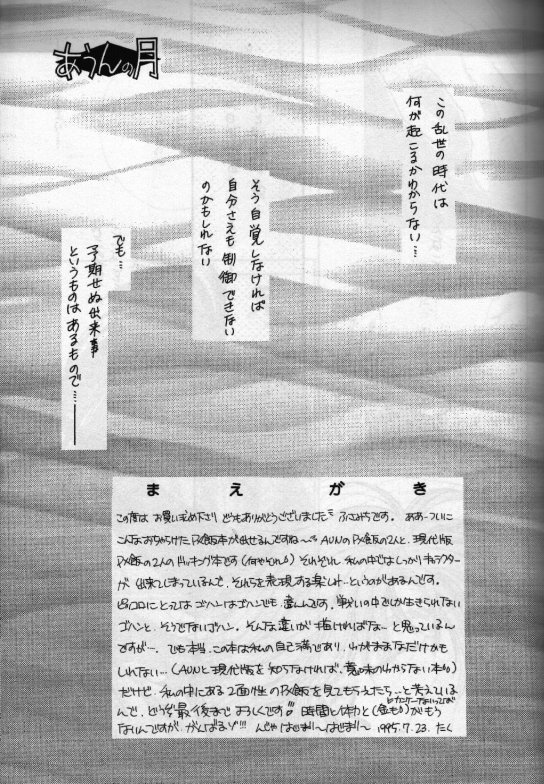 あうんの月
この乱世の時代は
何が起こるかわからない…
そう自覚しなければ
自分さえも制御できない
のかもしれない
でも…
予期せぬ出来事
というものはあるもので…――
まえがき
この度は お買い求め下さり どうもありがとうございました ふさみちです。 ああーついに
こんな おちゃらけた P×飯本が出せるんですね〜 AUNのP×飯の2人と、現代版
P×飯の2人のドッキング本です(何やそれ) それぞれ 私の中ではしっかりキャラクター
が 出来てしまっているんで、それらを表現する楽しみ…というのがあるんです。
ピッコロにとっては ゴハンはゴハンでも、違うんです。戦いの中でしか生きられない
ゴハンと、そうでないゴハン。そんな違いが 描ければな…と思っているん
ですが…。 でも本当、この本は私の自己満であり、わがままなだけかも
しれない…(AUNと現代版を知らなければ、意味のわからない本)
だけど、私の中にある2面性のP×飯を見てもらえたら…と考えている
んで、どうぞ最後まで よろしくです!! 時間と体力と(金も)がもう
ないんですが がんばるゾ!!! んじゃはじまり〜はじまり〜 1995.7.23. たく